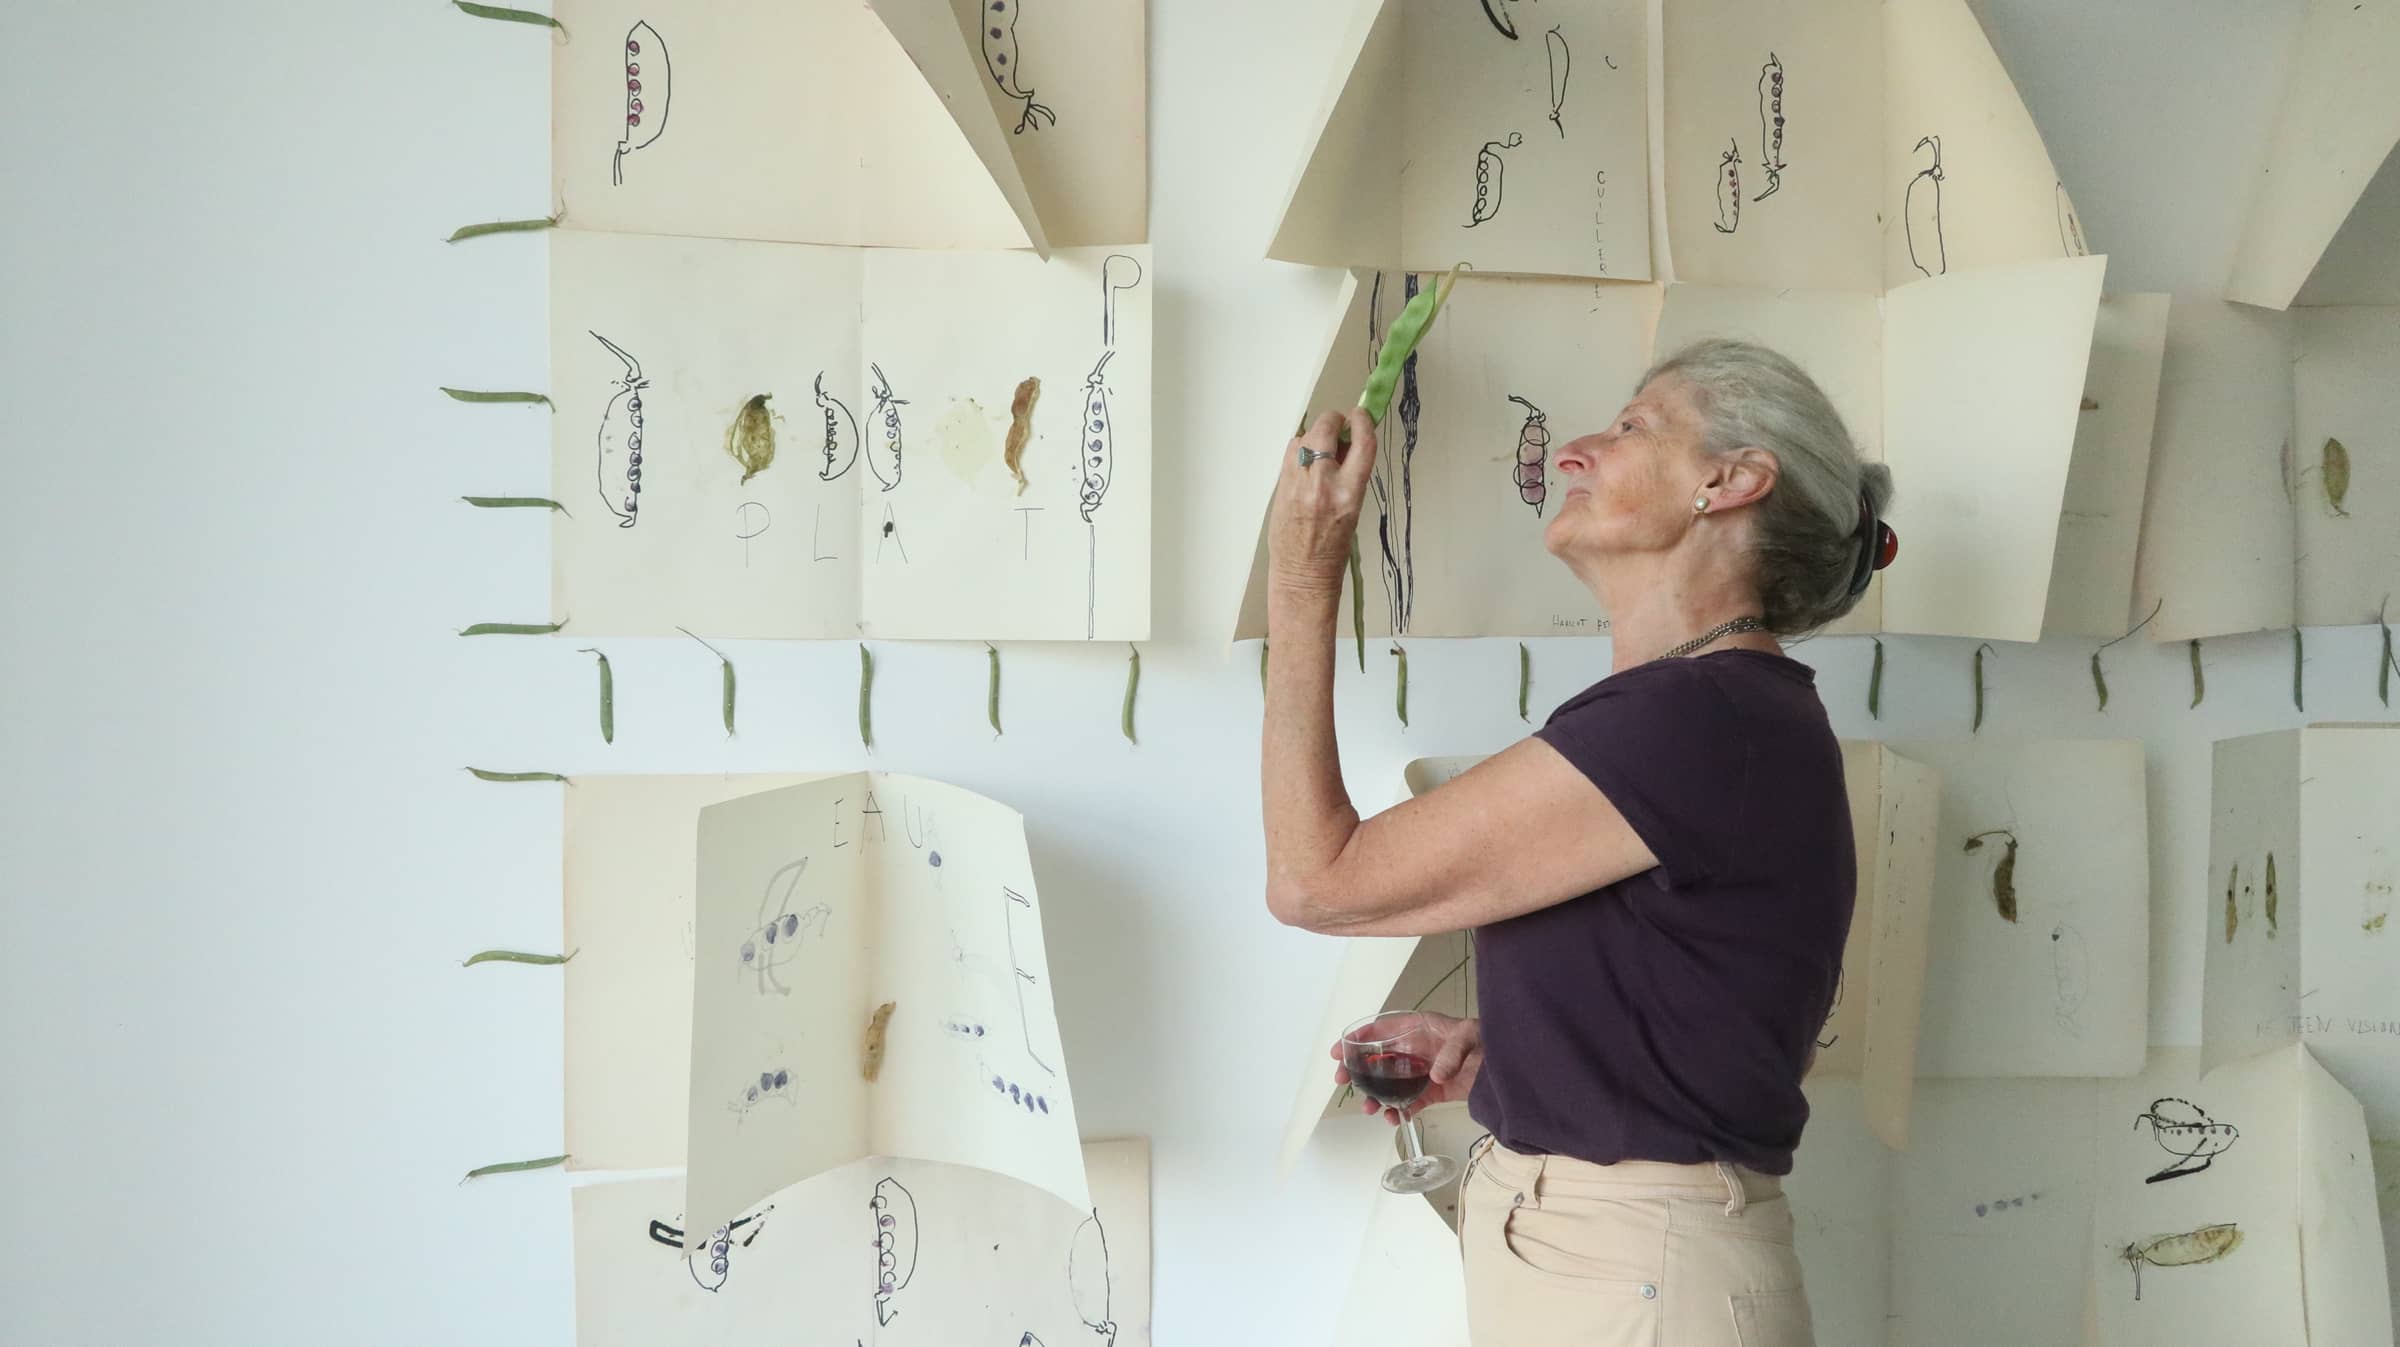 CUILLERE
PLAT
HARICOT
EAU
VISION